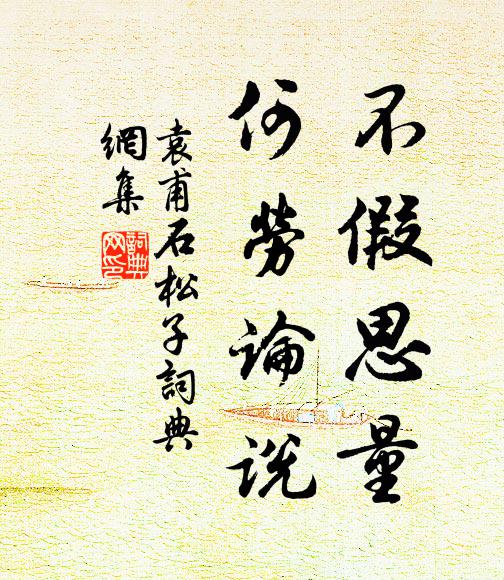 不假思量
何劳論说
袁甫石松子詞典
網集
詞典
网印